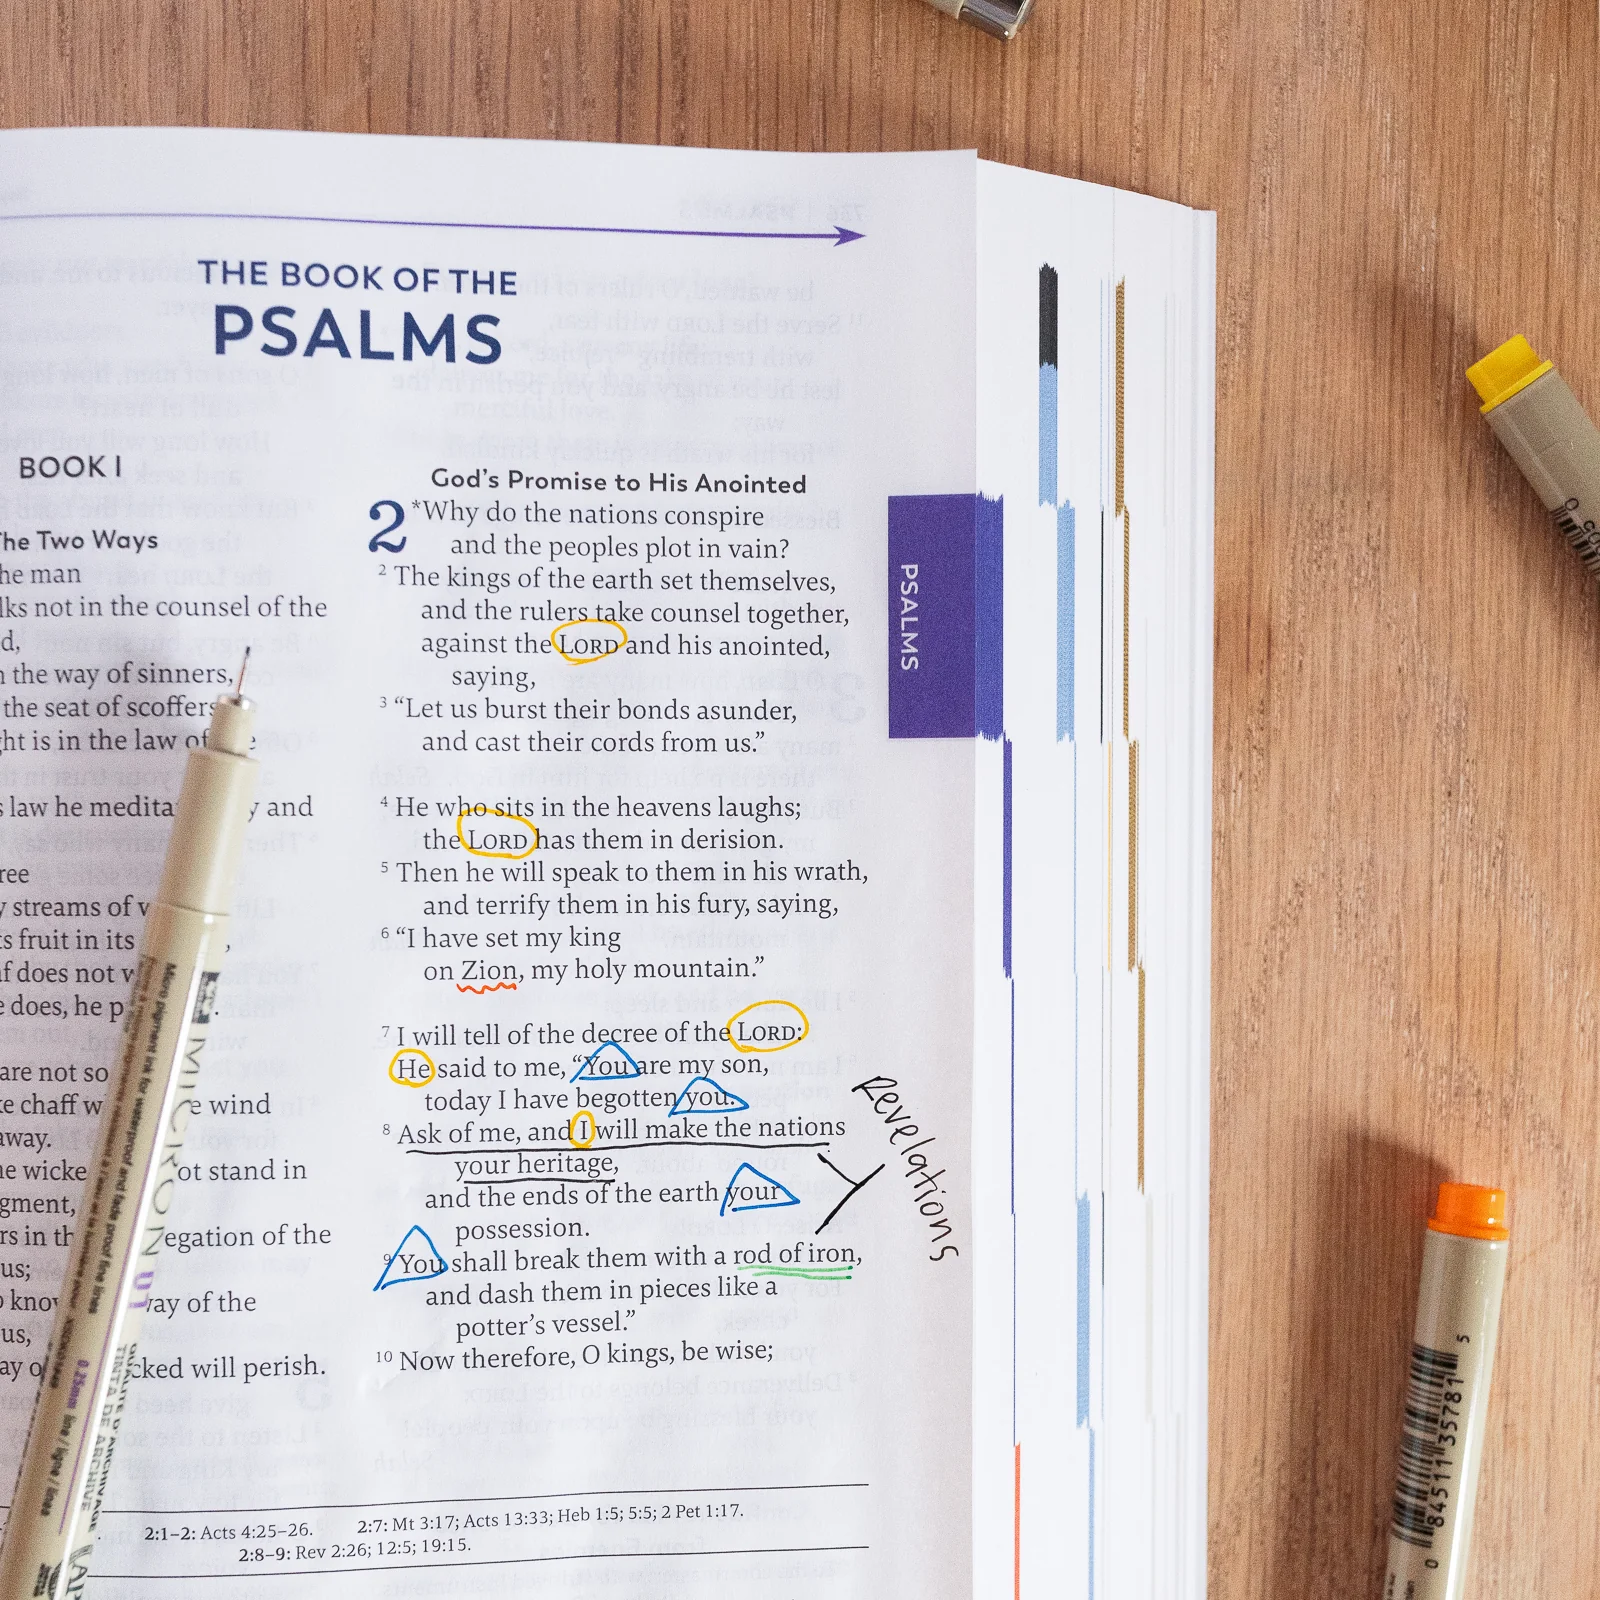 THE BOOK OF THE
PSALMS
BOOK I
The Two Ways
he man
lks not in the counsel of the
d,
the way of sinners,
the seat of scoffers
ght is in the law of
law he medita y and
ree
streams of
ts fruit in its ,
f does not
does, he p .
are not so
ke chaff w e wind
away.
he wicke ot stand in
gment,
rs in th egation of the
us;
kno way of the
us,
ay o cked will perish.
God's Promise to His Anointed
2 *Why do the nations conspire
and the peoples plot in vain?
2 The kings of the earth set themselves,
and the rulers take counsel together,
against the LORD and his anointed,
saying,
3 “Let us burst their bonds asunder,
and cast their cords from us.”
4 He who sits in the heavens laughs;
the LORD has them in derision.
5 Then he will speak to them in his wrath,
and terrify them in his fury, saying,
6 “I have set my king
on Zion, my holy mountain.”
7 I will tell of the decree of the LORD:
He said to me, “You are my son,
today I have begotten you.
8 Ask of me, and I will make the nations
your heritage,
and the ends of the earth your
possession.
9 You shall break them with a rod of iron,
and dash them in pieces like a
potter's vessel.”
10 Now therefore, O kings, be wise;
Revelations
PSALMS
2:1–2: Acts 4:25–26. 2:7: Mt 3:17; Acts 13:33; Heb 1:5; 5:5; 2 Pet 1:17.
2:8–9: Rev 2:26; 12:5; 19:15.
MICRON 01
Micro pigment ink for waterproof and fade proof fine lines
0.25mm fine / ligne / línea
0 84511 35781 5